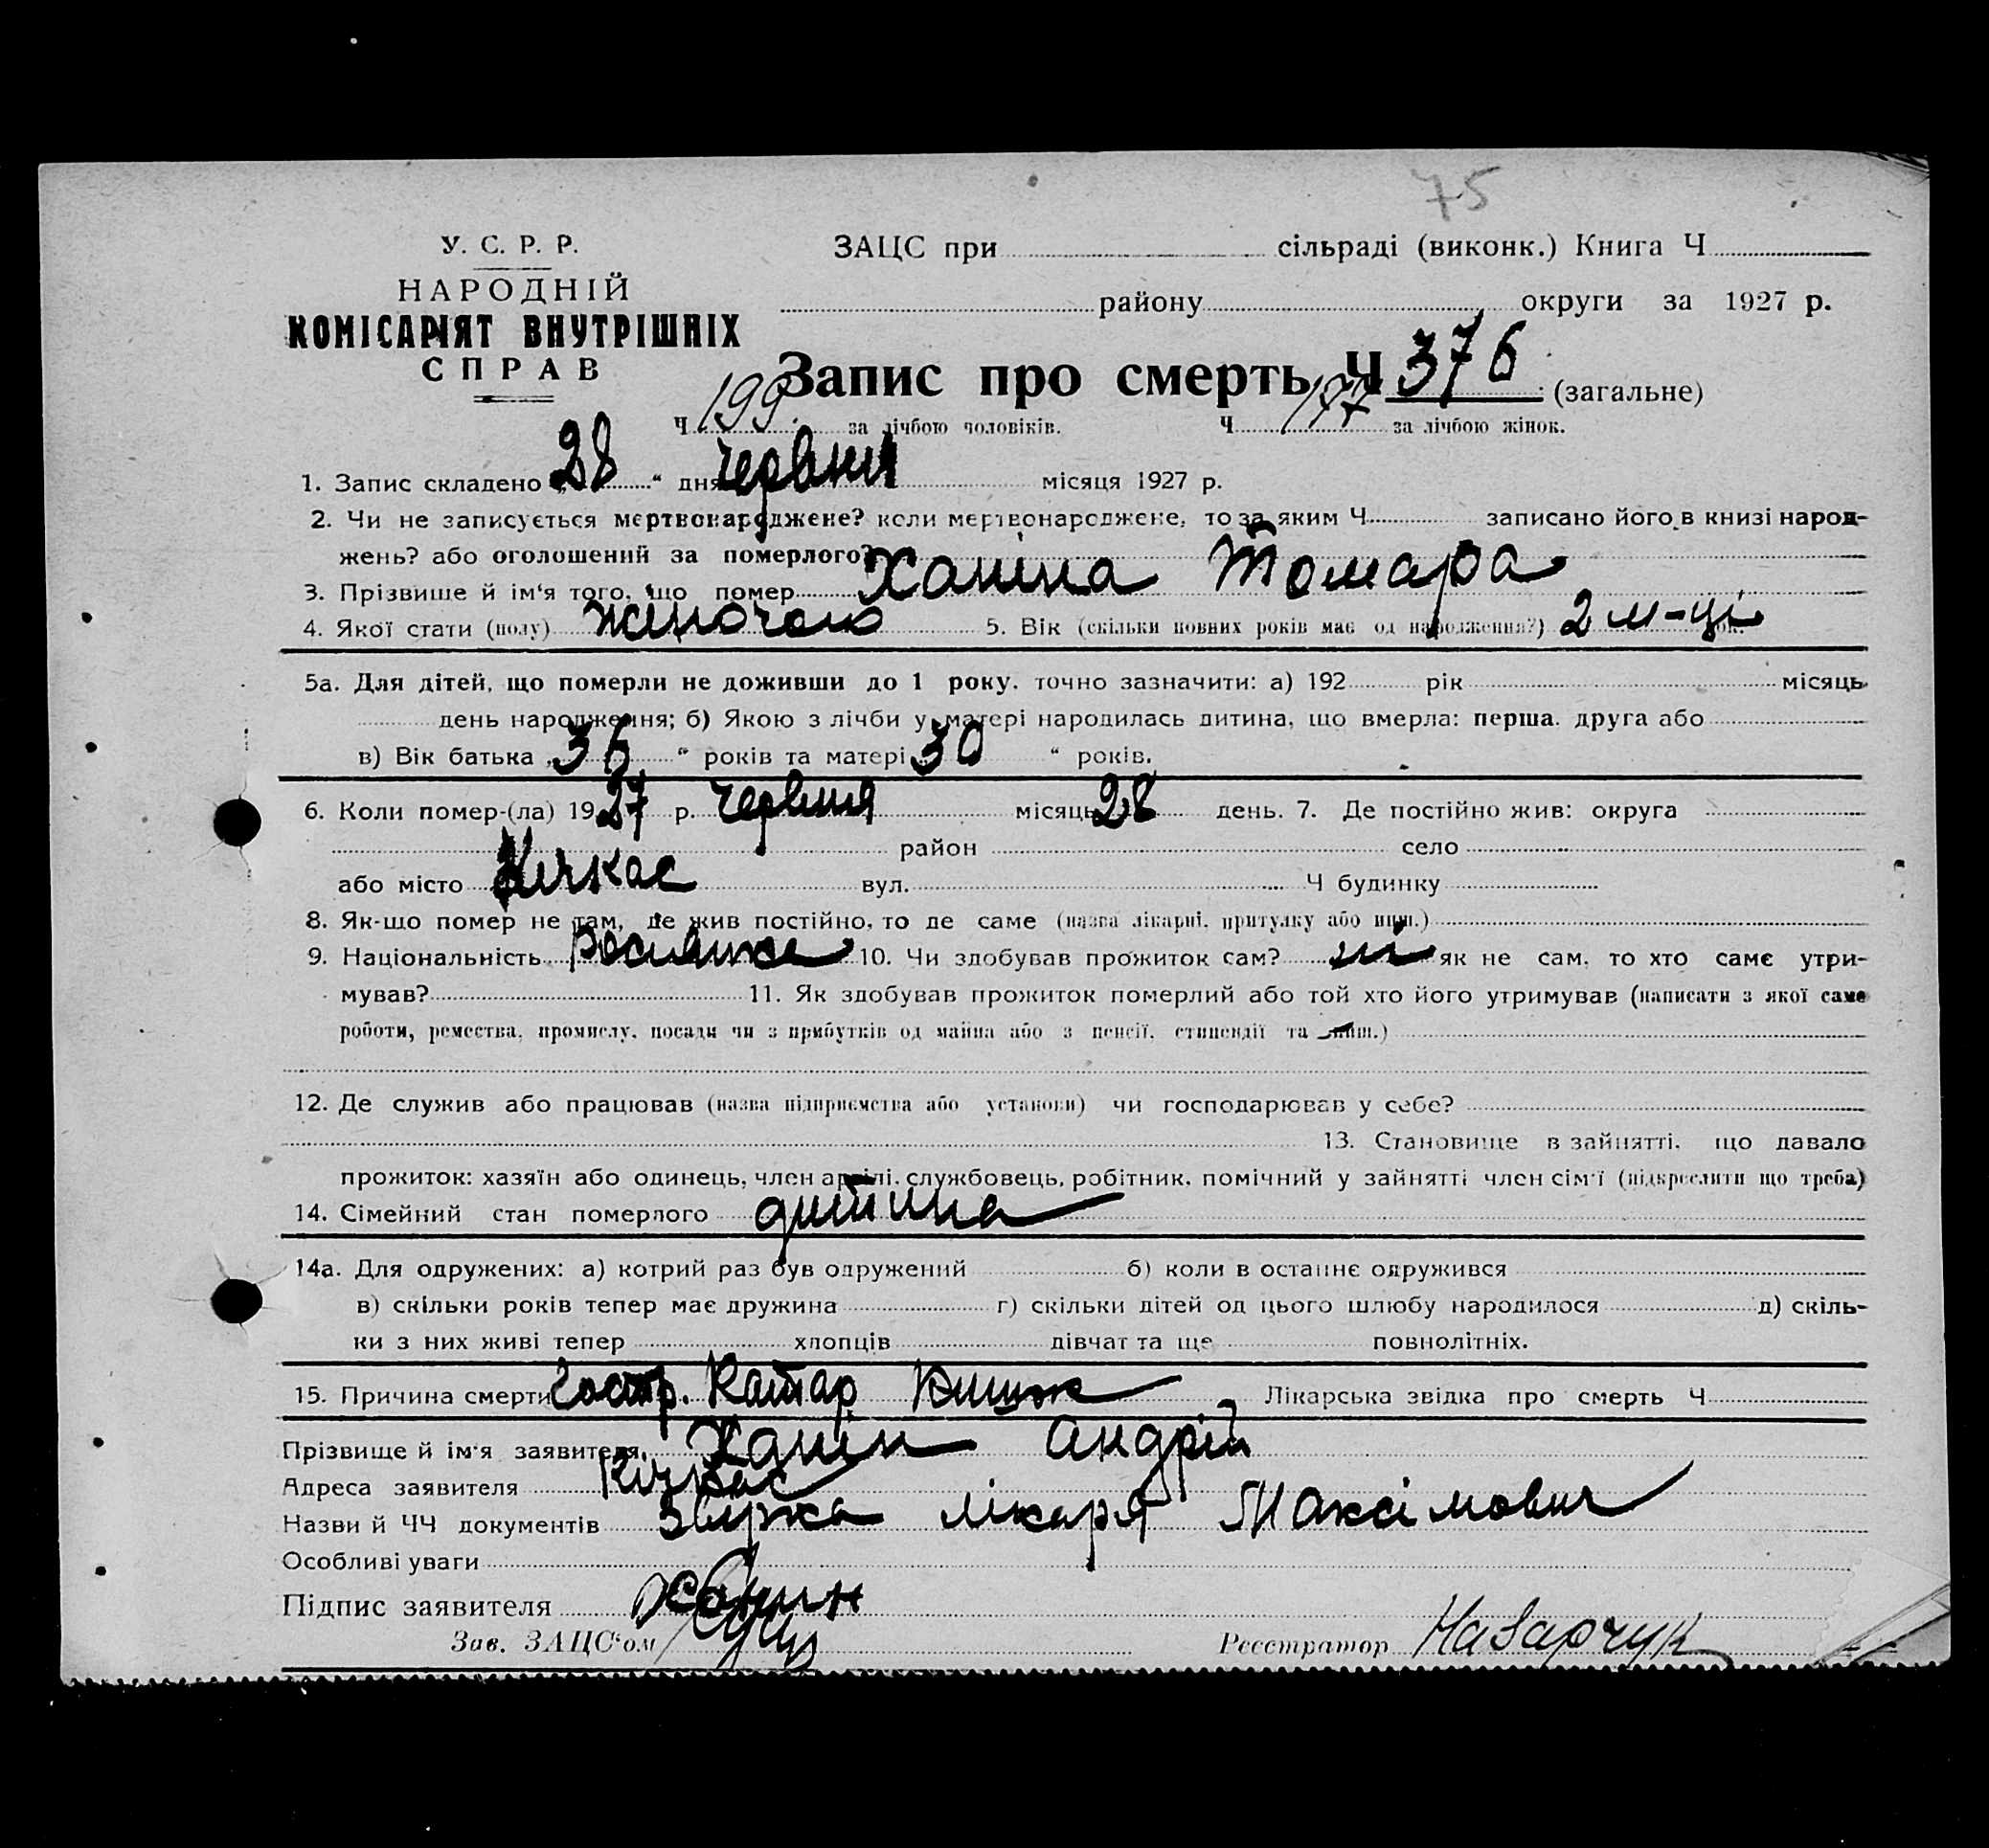 75
У. С. Р. Р.
НАРОДНІЙ
КОМІСАРІЯТ ВНУТРІШНІХ
СПРАВ
ЗАЦС при сільраді (виконк.) Книга Ч
району округи за 1927 р.
Запис про смерть Ч 376 (загальне)
Ч 199 за лічбою чоловіків. Ч 177 за лічбою жінок.
1. Запис складено „28“ дня червня місяця 1927 р.
2. Чи не записується мертвонароджене? коли мертвонароджене, то за яким Ч записано його в книзі народ-
жень? або оголошений за померлого?
3. Прізвище й ім'я того, що помер Ханіна Томара
4. Якої стати (полу) жіночого 5. Вік (скільки повних років має од народження?) 2 м-ці
5а. Для дітей, що померли не доживши до 1 року, точно зазначити: а) 192 рік місяць
день народження; б) Якою з лічби у матері народилась дитина, що вмерла: перша, друга або
в) Вік батька „36“ років та матері 30 “ років.
6. Коли помер-(ла) 1927 р. червня місяць 28 день. 7. Де постійно жив: округа
район село
або місто Кичкас вул. Ч будинку
8. Як-що помер не там, де жив постійно, то де саме (назва лікарні, притулку або инш.)
9. Національність росиянка 10. Чи здобував прожиток сам? ні як не сам, то хто саме утри-
мував? 11. Як здобував прожиток померлий або той хто його утримував (написати з якої саме
роботи, ремества, промислу, посади чи з прибутків од майна або з пенсії, стипендії та инш.)
12. Де служив або працював (назва підприємства або установи) чи господарював у себе?
13. Становище в зайнятті, що давало
прожиток: хазяїн або одинець, член артілі, службовець, робітник, помічний у зайнятті член сім'ї (підкреслити що треба)
14. Сімейний стан померлого дитина
14а. Для одружених: а) котрий раз був одружений б) коли в останнє одружився
в) скільки років тепер має дружина г) скільки дітей од цього шлюбу народилося д) скіль-
ки з них живі тепер хлопців дівчат та ще повнолітніх.
15. Причина смерти Гостр. Катар Кишок Лікарська звідка про смерть Ч
Прізвище й ім'я заявителя Ханін Андрій
Адреса заявителя Кічкас
Назви й ЧЧ документів лікаря Максімович
Особливі уваги
Підпис заявителя Ханин
Зав. ЗАЦС'ом Реєстратор Назарчук